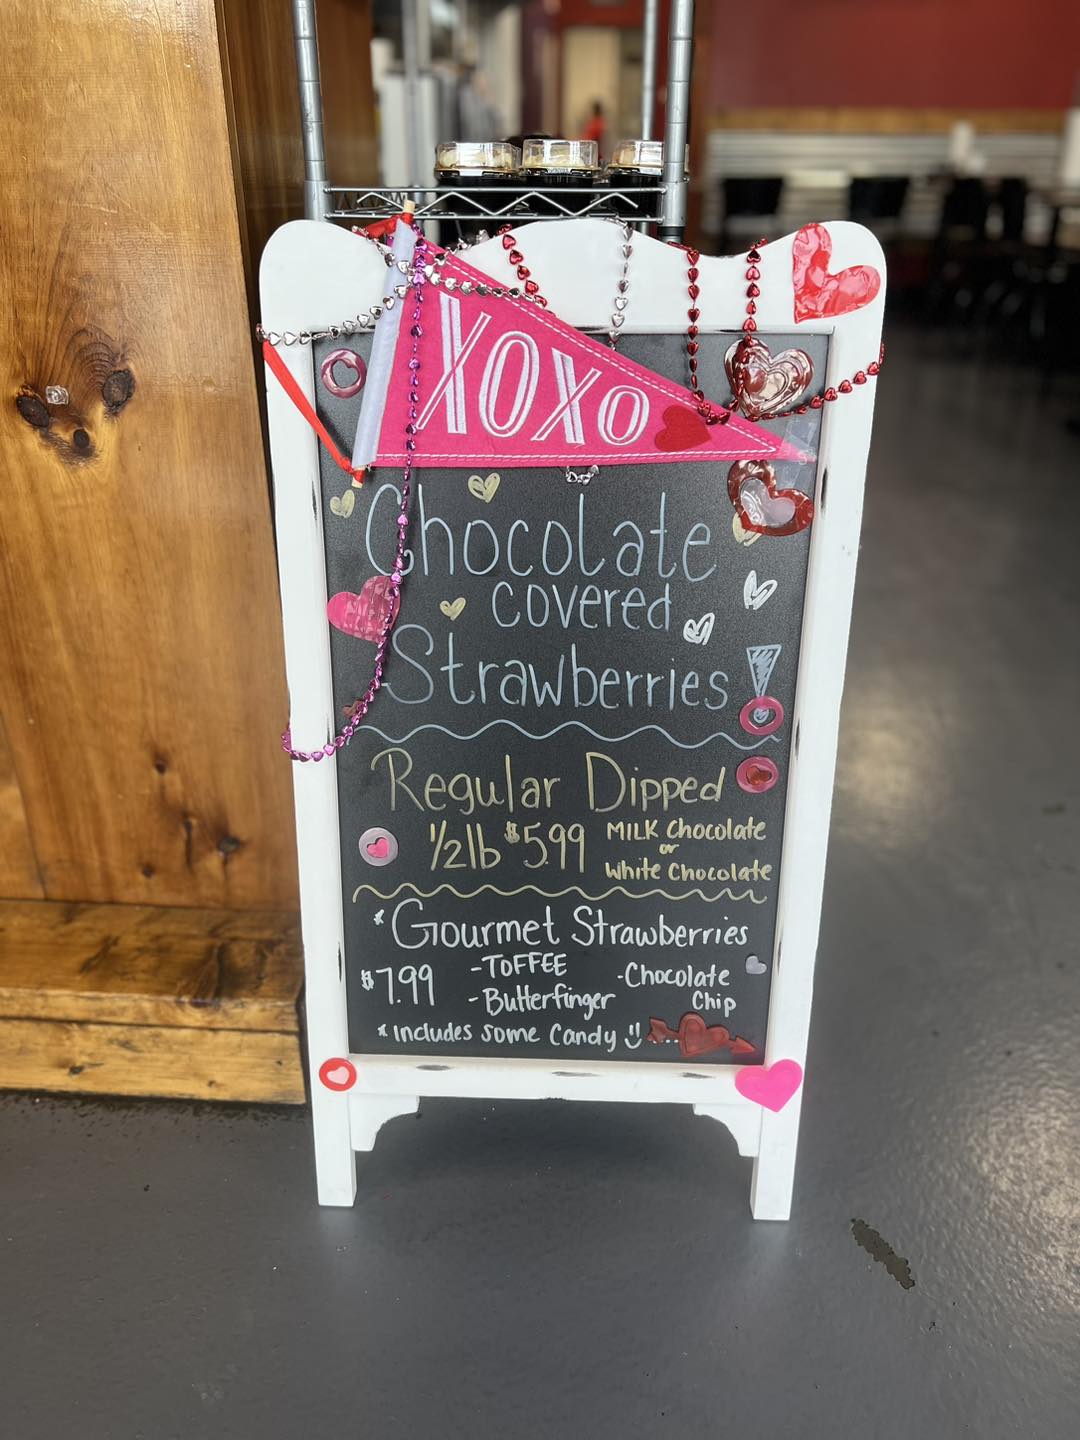 XOXO
Chocolate
covered
Strawberries !
Regular Dipped
1/2lb $5.99 MILK Chocolate
or
White Chocolate
*Gourmet Strawberries
$7.99 -TOFFEE -Chocolate
-Butterfinger Chip
*includes some Candy ...